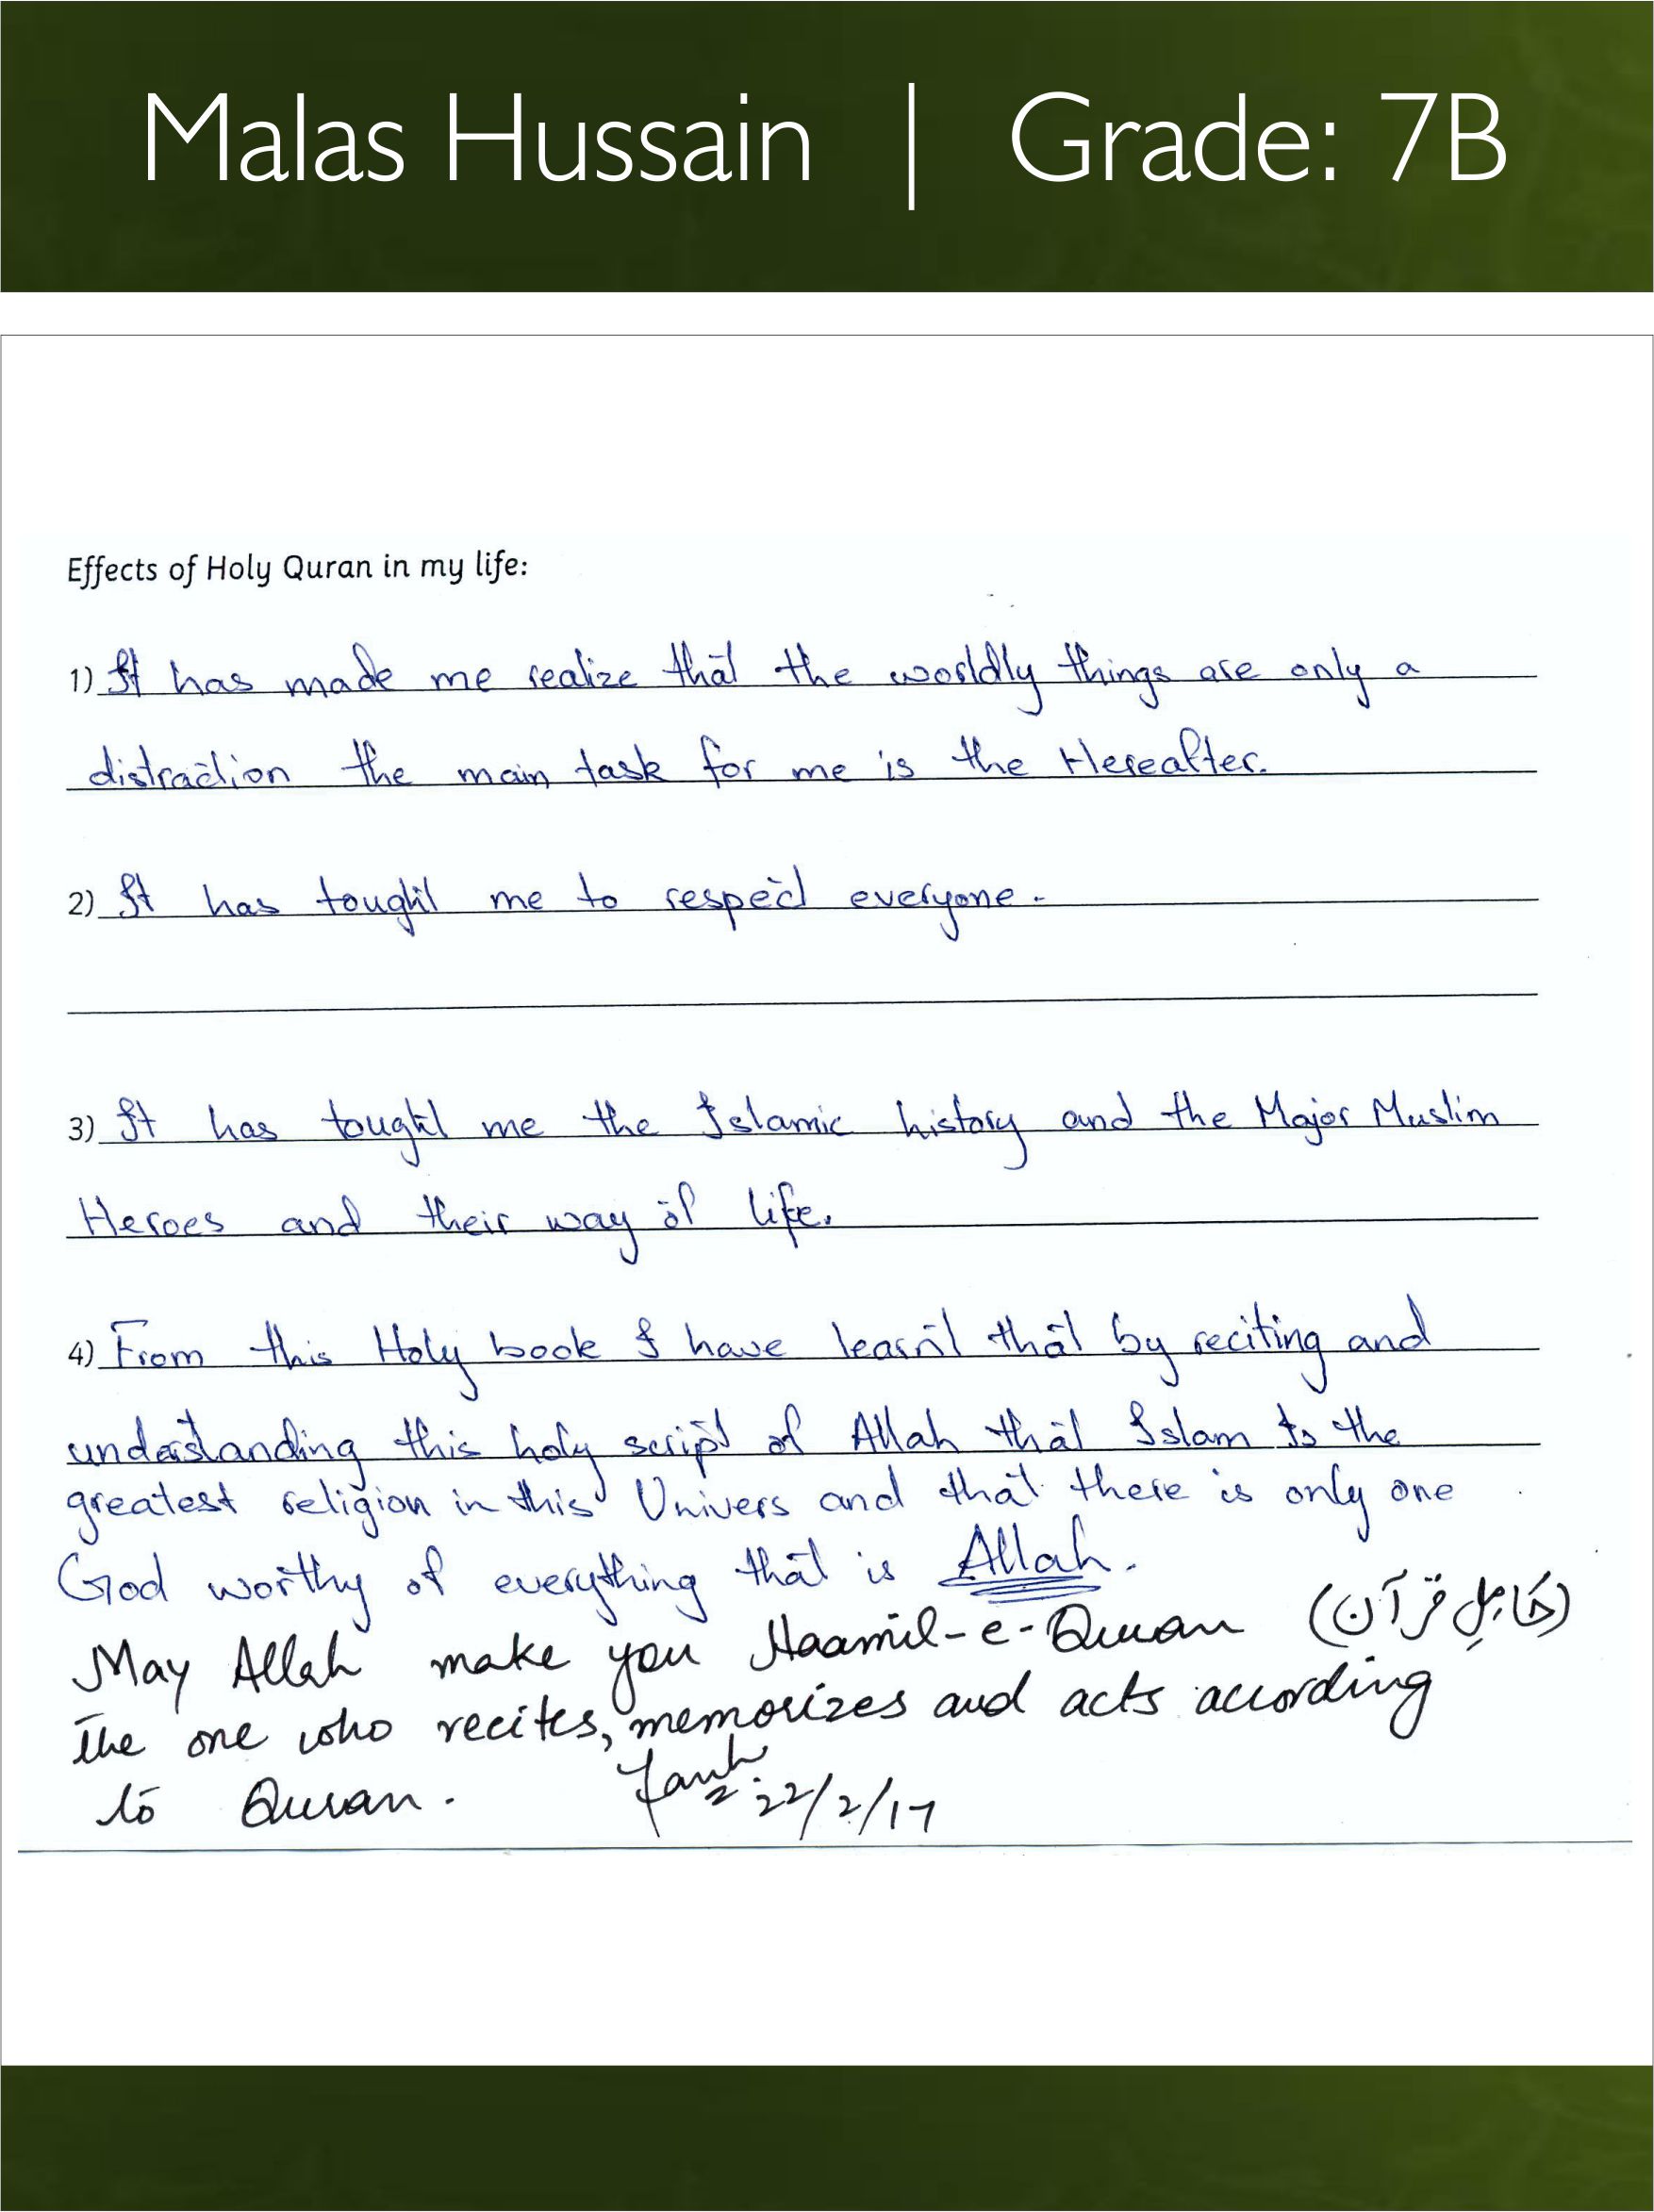 Malas Hussain | Grade: 7B
Effects of Holy Quran in my life:
1) It has made me realize that the worldly things are only a
distraction the main task for me is the Hereafter.
2) It has tought me to respect everyone.
3) It has tought me the Islamic history and the Major Muslim
Heroes and their way of life.
4) From this Holy book I have learnt that by reciting and
understanding this holy script of Allah that Islam is the
greatest religion in this Univers and that there is only one
God worthy of everything that is Allah.
May Allah make you Haamil-e-Quran (حَامِلِ قرآن)
The one who recites, memorizes and acts according
to Quran. 22/2/17